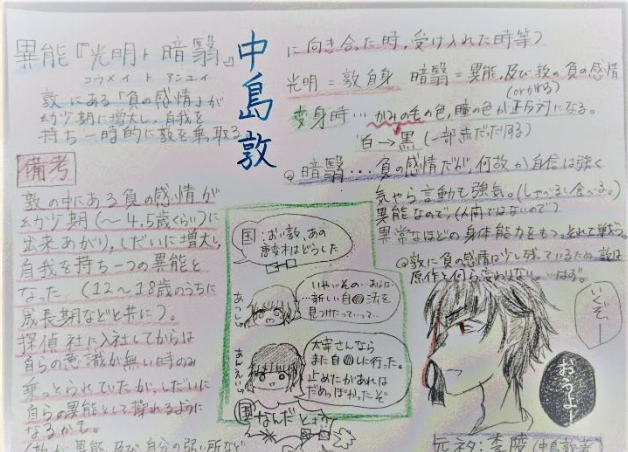 異能『光明ト暗翳』
コウメイト アンエイ
敦にある「負の感情」が
幼少期に増大し、自我を
持ち一時的に敦を乗取る
中島敦
備考
敦の中にある負の感情が
幼少期(～4.5歳くらい)に
出来あがり、しだいに増大し、
自我を持ち一つの異能と
なった (12～18歳のうちに
成長期などと共に)。
探偵社に入社してからは
自らの意識が無い時のみ
乗っとられていたが、しだいに
自らの異能として操れるように
なるかも。
異能、及び自分の弱い所など
に向き合った時、受け入れた時等)
光明=敦自身 暗翳=異能、及び敦の負の感情
変身時…かみの毛の色、瞳の色が正反対になる。
白→黒(一部
暗翳…負の感情だが、何故か自信は強く
気やら言動も強気。(しゃべるし食べる。)
異能なので(人間ではないので)
異常なほどの身体能力をもつ。それで戦う。
敦に負の感情は少し残っているため、敦は
原作と何ら変わりない。…はず。
国:おい敦、あの
はどうした
あつし
いやいその…
…新しい自 法を
見つけたっていって…
太宰さんなら
また自 しに行った。
止めたがあれは
だめっぽかったぞ
あんえい
国 なんだとォ
いくぞー
おうよ!
元ネタ:李陵(中島敦著)